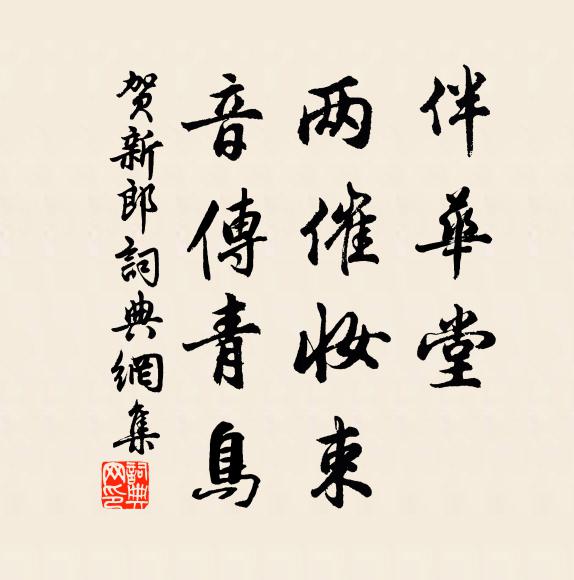 伴華堂
两催妆束
音傳青鳥
贺新郎詞典網集
詞典
网印